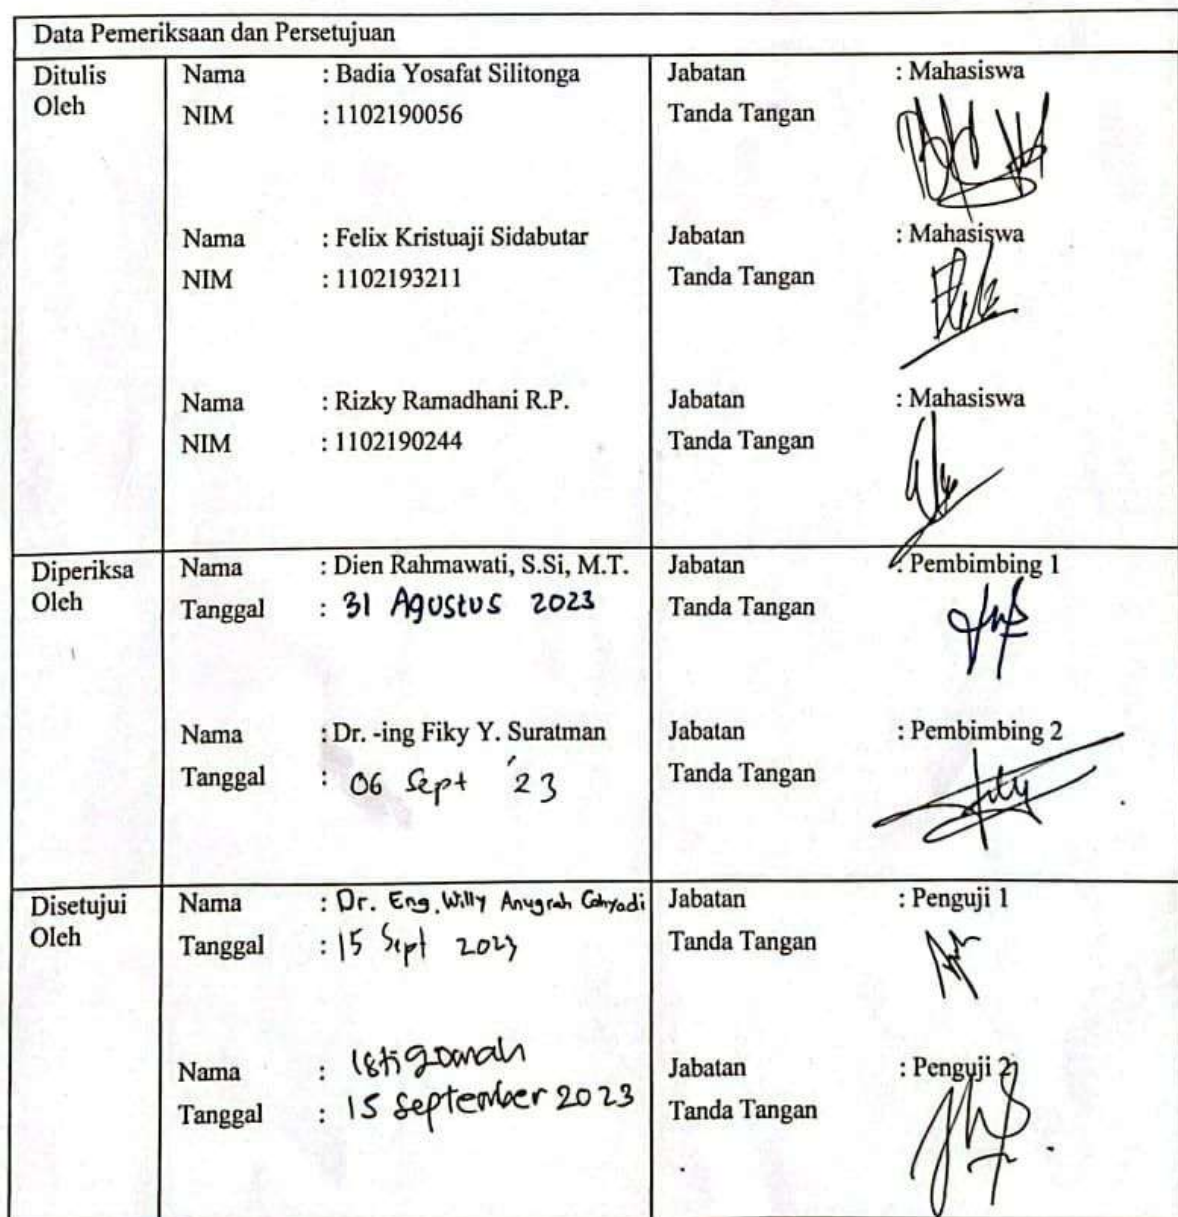 Data Pemeriksaan dan Persetujuan
Ditulis Oleh
Nama : Badia Yosafat Silitonga Jabatan : Mahasiswa
NIM : 1102190056 Tanda Tangan
Nama : Felix Kristuaji Sidabutar Jabatan : Mahasiswa
NIM : 1102193211 Tanda Tangan
Nama : Rizky Ramadhani R.P. Jabatan : Mahasiswa
NIM : 1102190244 Tanda Tangan
Diperiksa Oleh
Nama : Dien Rahmawati, S.Si, M.T. Jabatan : Pembimbing 1
Tanggal : 31 Agustus 2023 Tanda Tangan
Nama : Dr. -ing Fiky Y. Suratman Jabatan : Pembimbing 2
Tanggal : 06 Sept '23 Tanda Tangan
Disetujui Oleh
Nama : Dr. Eng. Willy Anugrah Cahyadi Jabatan : Penguji 1
Tanggal : 15 Sept 2023 Tanda Tangan
Nama : Istiqomah Jabatan : Penguji 2
Tanggal : 15 September 2023 Tanda Tangan